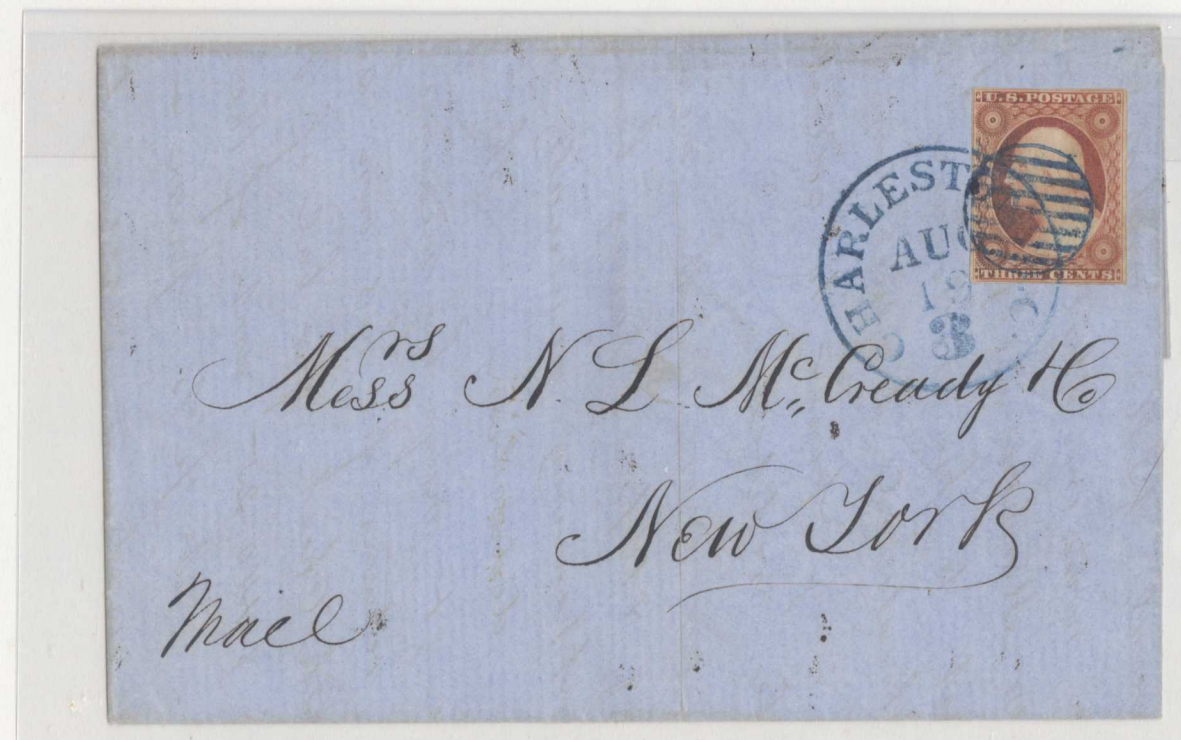 U.S. POSTAGE
THREE CENTS
CHARLESTO
AUG
19
3
Messrs N. L. McCready & Co
New York
Mail